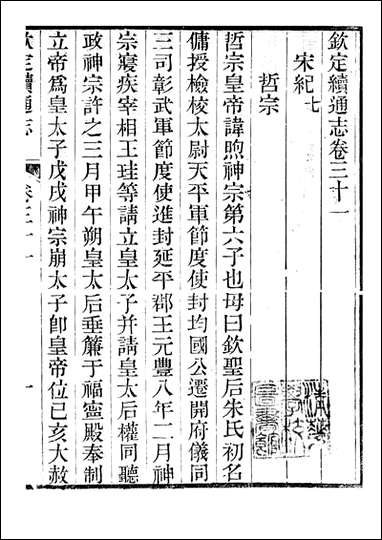 欽定續通志卷三十一
宋紀七
哲宗
哲宗皇帝諱煦神宗第六子也母曰欽聖后朱氏初名
傭授檢校太尉天平軍節度使封均國公遷開府儀同
三司彰武軍節度使進封延平郡王元豐八年二月神
宗寢疾宰相王珪等請立皇太子并請皇太后權同聽
政神宗許之三月甲午朔皇太后垂簾于福寧殿奉制
立帝爲皇太子戊戌神宗崩太子卽皇帝位已亥大赦
欽定續通志
卷三十一
一